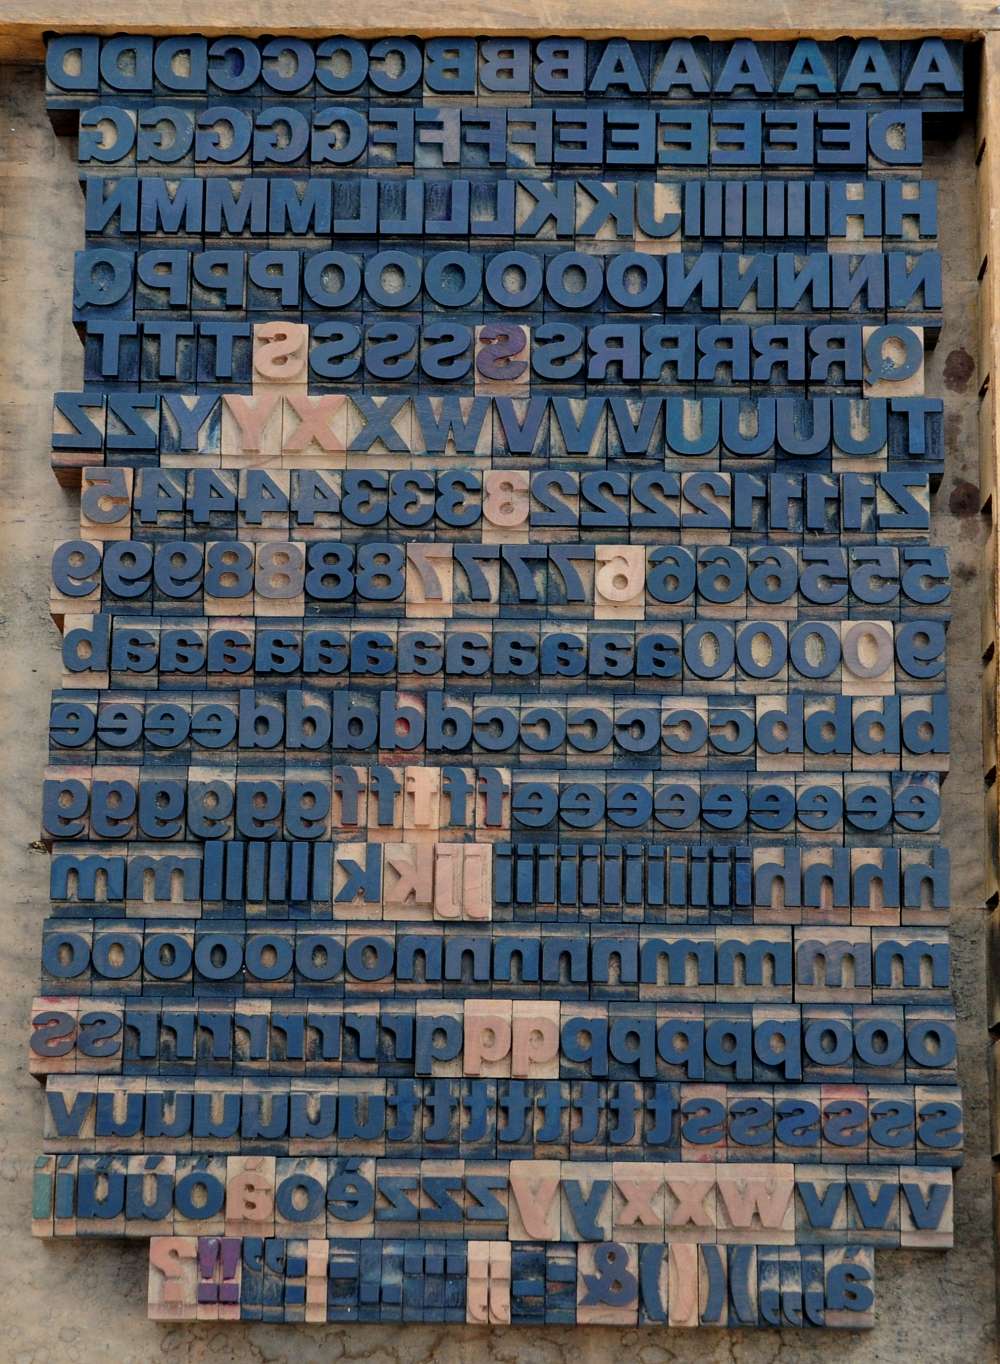 AAAAAABBBCCCCDDD
DEEEEEEFFFFGGGGG
HHIIIIIIJKKLLLLMMMN
NNNNNOOOOOOPPPQ
QRRRRRSSSSSSTTT
TUUUUVVVWXXYYZZ
Z11112222833344445
555666677778888999
90000aaaaaaaaaaaab
bbbbccccccdddddeeee
eeeeeeeeefffffgggggg
hhhhiiiiiiiiiiiijjkklllllmm
mmmmnnnnnooooooo
ooopppppqqqrrrrrrrrss
ssssssttttttttuuuuuuv
vvvwxxyyzzzéóáóúúíí
á
&
!!?